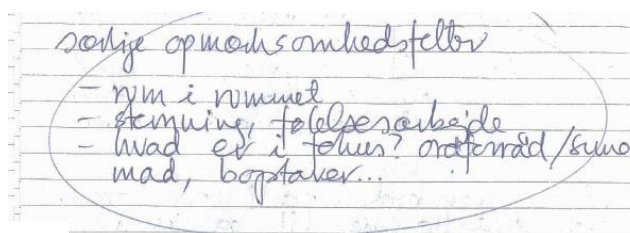 særlige opmærksomhedsfelter
- rum i rummet
- stemning, følelsesarbejde
- hvad er i fokus? ordforråd/
mad, bogstaver...